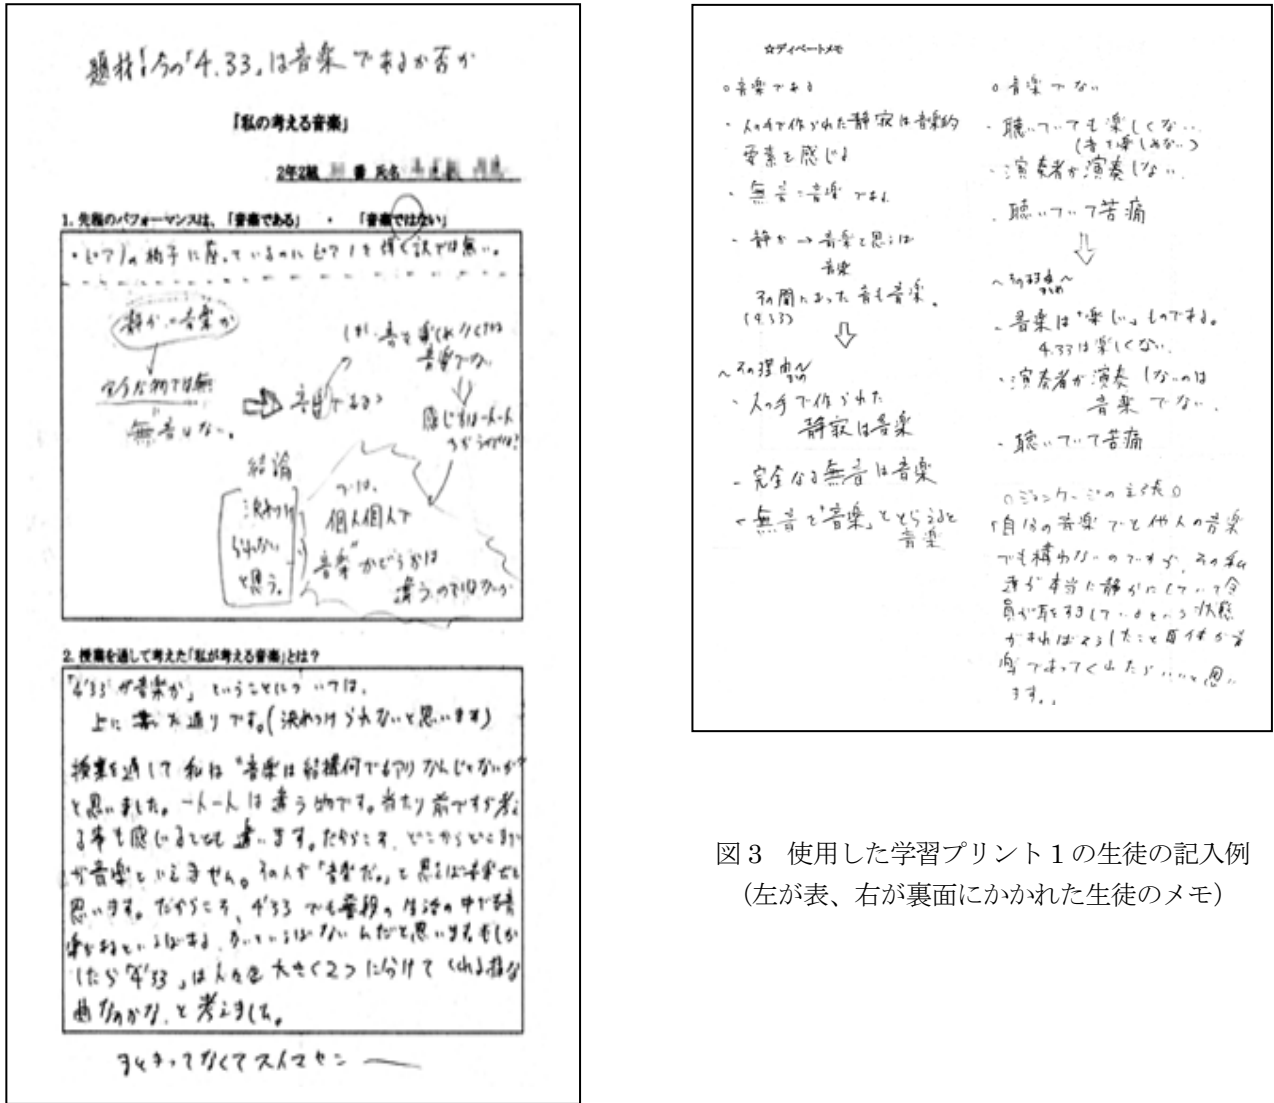 題材:今の「4.33」は音楽であるか否か
「私の考える音楽」
2年2組 番 氏名
1. 先程のパフォーマンスは、「音楽である」 ・ 「音楽ではない」
・ピアノの椅子に座っているのにピアノを弾く訳では無い。
静か=音楽か
完全な物では無
無音はない。
音楽でない
感じ方は一人一人
ちがうのでは?
結論
決めつけ
られない
と思う。
では、
個人個人で
"音楽"かどうかは
違うのではないか
2. 授業を通して考えた「私が考える音楽」とは?
「4'33"が音楽か」ということについては、
上に書いた通りです。(決めつけられないと思います)
授業を通して私は"音楽は結構何でもアリなんじゃないか"
と思いました。一人一人は違う的です。当たり前ですが考え
る事も感じることも違います。だからこそ、どこからどこまで
が音楽といえません。その人が「音楽だ。」と思えば音楽だと
思います。だからこそ、4'33でも普段の生活の中でも音
楽があるといえばある、ないといえばないんだと思います。もしか
したら「4'33」は人々を大きく2つに分けてくれる様な
曲なのかな、と考えました。
まとまってなくてスイマセン
☆ディベートメモ
○音楽である
・人の手で作られた静寂は音楽的
要素を感じる
・無音=音楽である
・静か→音楽と思えば
音楽
その間にあった音も音楽。
(4.33)
~その理由~
まとめ
・人の手で作られた
静寂は音楽
・完全なる無音は音楽
・無音で「音楽」ととらえると
音楽
○音楽でない
・聴いていても楽しくない
(音を楽しめない)
・演奏者が演奏しない
・聴いていて苦痛
~その理由~
まとめ
・音楽は「楽しい」ものである。
4.33は楽しくない
・演奏者が演奏しないのは
音楽でない。
・聴いていて苦痛
○ジョンケージの主張○
「自分の音楽でも他人の音楽
でも構わないのですが、その私
達が本当に静かにしていて全
員が耳をすましているという状態
があればそうしたこと自体が音
楽であってくれたらいいと思い
ます。」
図3 使用した学習プリント1の生徒の記入例
(左が表、右が裏面にかかれた生徒のメモ)